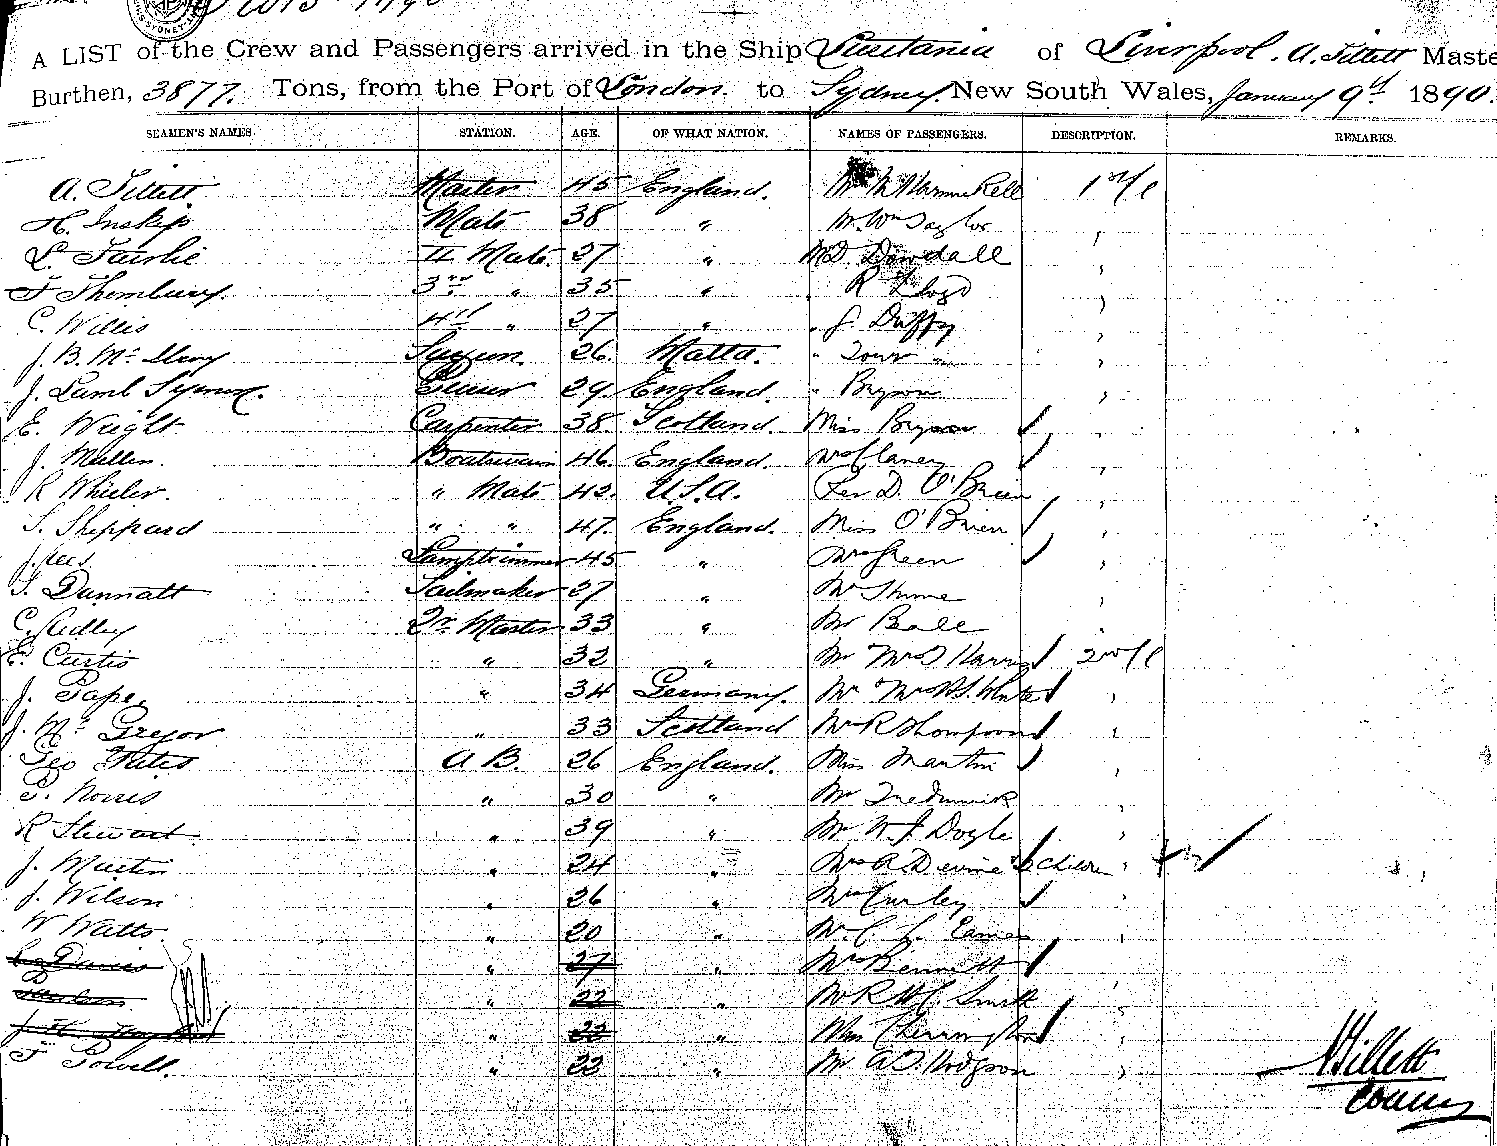 A LIST of the Crew and Passengers arrived in the Ship Lusitania of Liverpool. A. Tillett Maste
Burthen, 3877. Tons, from the Port of London. to Sydney. New South Wales, January 9th 1890.
SEAMEN'S NAMES. STATION. AGE. OF WHAT NATION. NAMES OF PASSENGERS. DESCRIPTION. REMARKS.
A. Tillett Master 45 England. 1st/c
H. Inskip Mate 38 " Mr Wm Taylor "
L. Fairlie II Mate. 27 " Dowdall "
F Thornbury. 3rd " 35 " R Lloyd "
C. Willis 4th " 27 " " J. Duffy "
J. B. Surgeon. 26. Malta. " "
J. Lamb Purser 29. England. " Bryson "
E. Wright. Carpenter 38. Scotland. Miss Bryson "
J. Mullin. Boatswain 46. England. Mrs Clancy "
R Wheeler. " Mate 42. U.S.A. Rev D. O'Brien "
S. Sheppard " " 47. England. Miss O'Brien "
J. Lamptrimmer 45 " Mrs Green "
T. Dunnatt Sailmaker 27 " Mr Thorne "
C. Ridley Qr. Master 33 " Mr Beale "
E. Curtis " 32 " Mr Mrs 2nd/c
J. Pape. " 34 Germany. Mr Mrs "
J. McGregor " 33 Scotland Mr R Thompson "
Geo A B. 26 England. Miss Martin "
P. Norris " 30 " Mr "
R Stewart " 39 " Mr W. J. Doyle "
J. Martin " 24 " Mrs A. Devine & Children "
J. Wilson " 26 " Mrs Curley "
W Watts " 20 " Mr. C. "
Davies " 27 " Mrs Bennett "
" 22 " Mr R Smith "
J. H. " 22 " Miss Cherrington "
F Powell. " 22 " Mr A. Hodgson "
Tillett